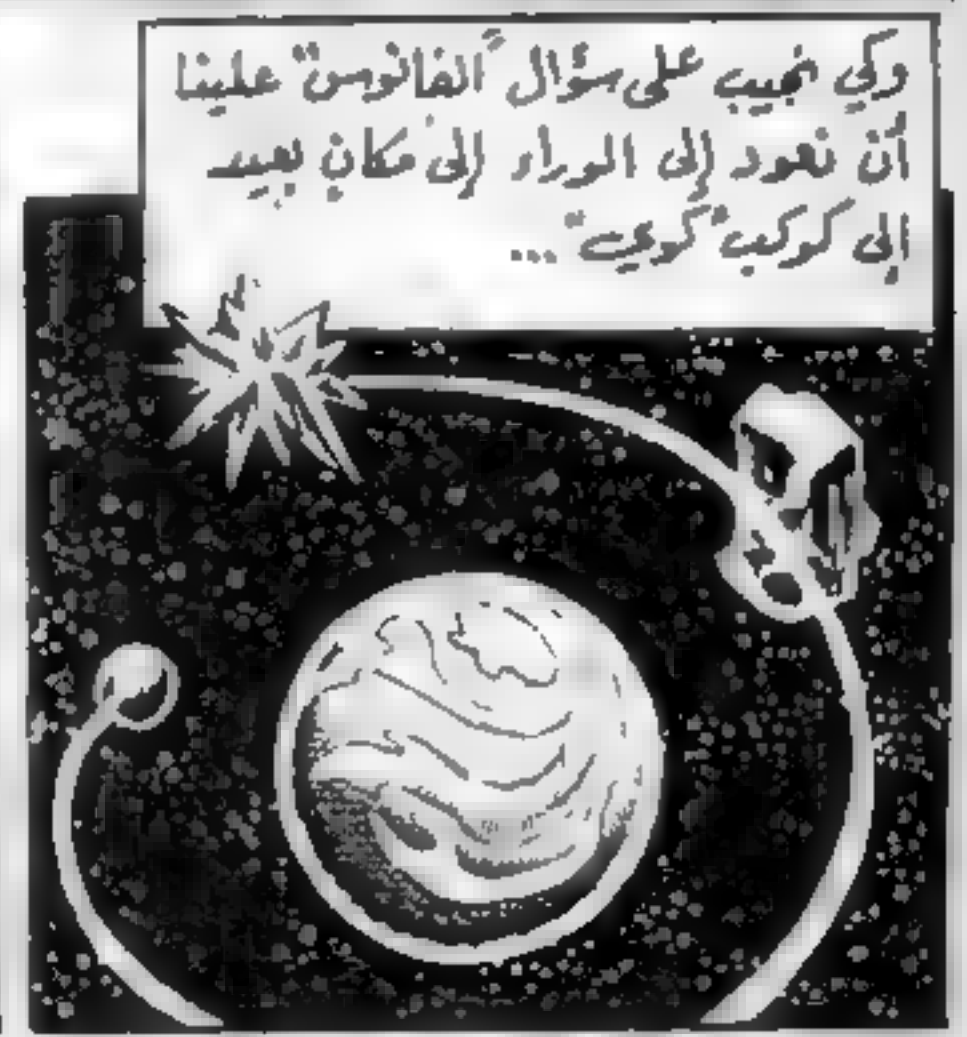 وكي نجيب على سؤال "الفانوس" علينا
أن نعود إلى الوراء إلى مكان بعيد
إلى كوكب "كوي" ...